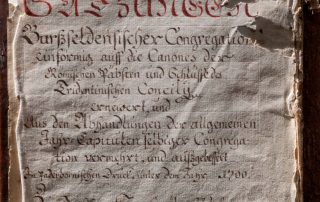 SATZUNGEN
Burßfeldensischer Congregation
einförmig auff die Canones der
Römischen Pabsten und Schluß des
Tridentinischen Concily
ernewert und
Aus den Abhandlungen der allgemeinen
Jahr-Capitulen selbiger Congrega-
tion vermehrt und außgebessert
Druck Unter dem Jahr 1700.